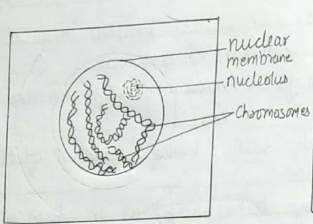 nuclear
membrane
nucleolus
Chromasomes